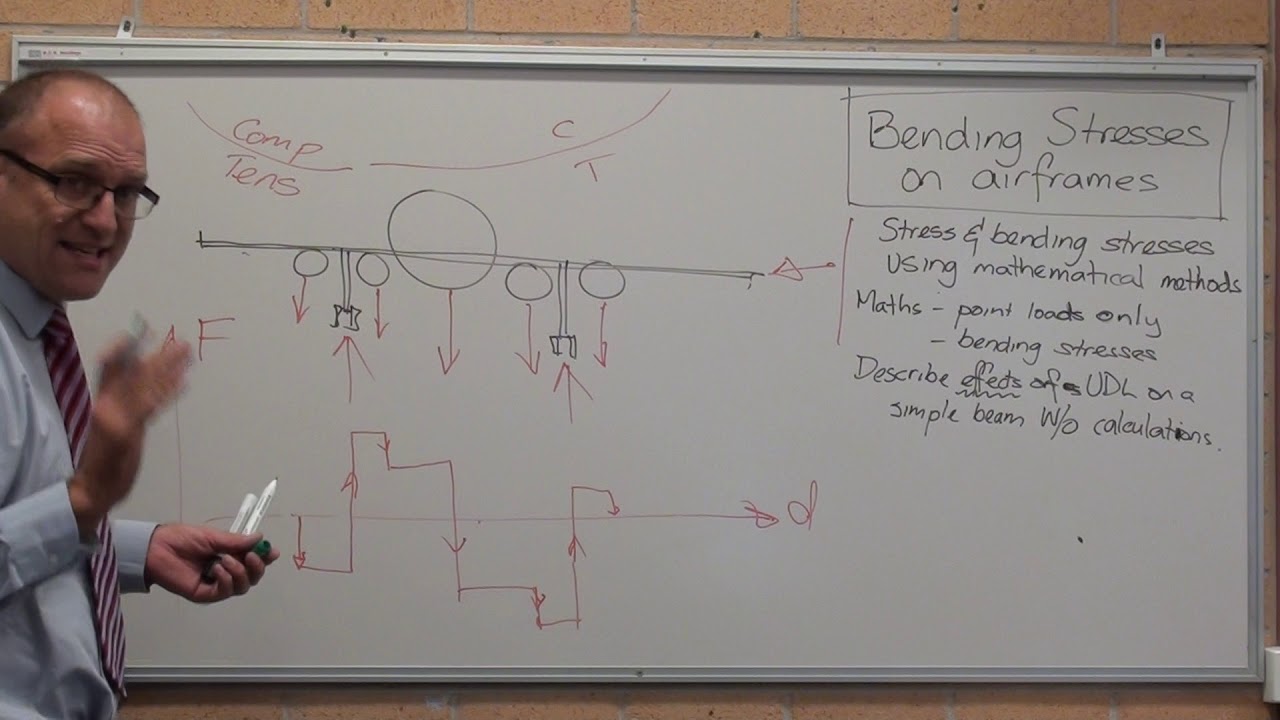 Comp
Tens
C
T
F
d
Bending Stresses
on airframes
Stress & bending stresses
using mathematical methods
Maths - point loads only
- bending stresses
Describe effects of UDL on a
simple beam W/o calculations.